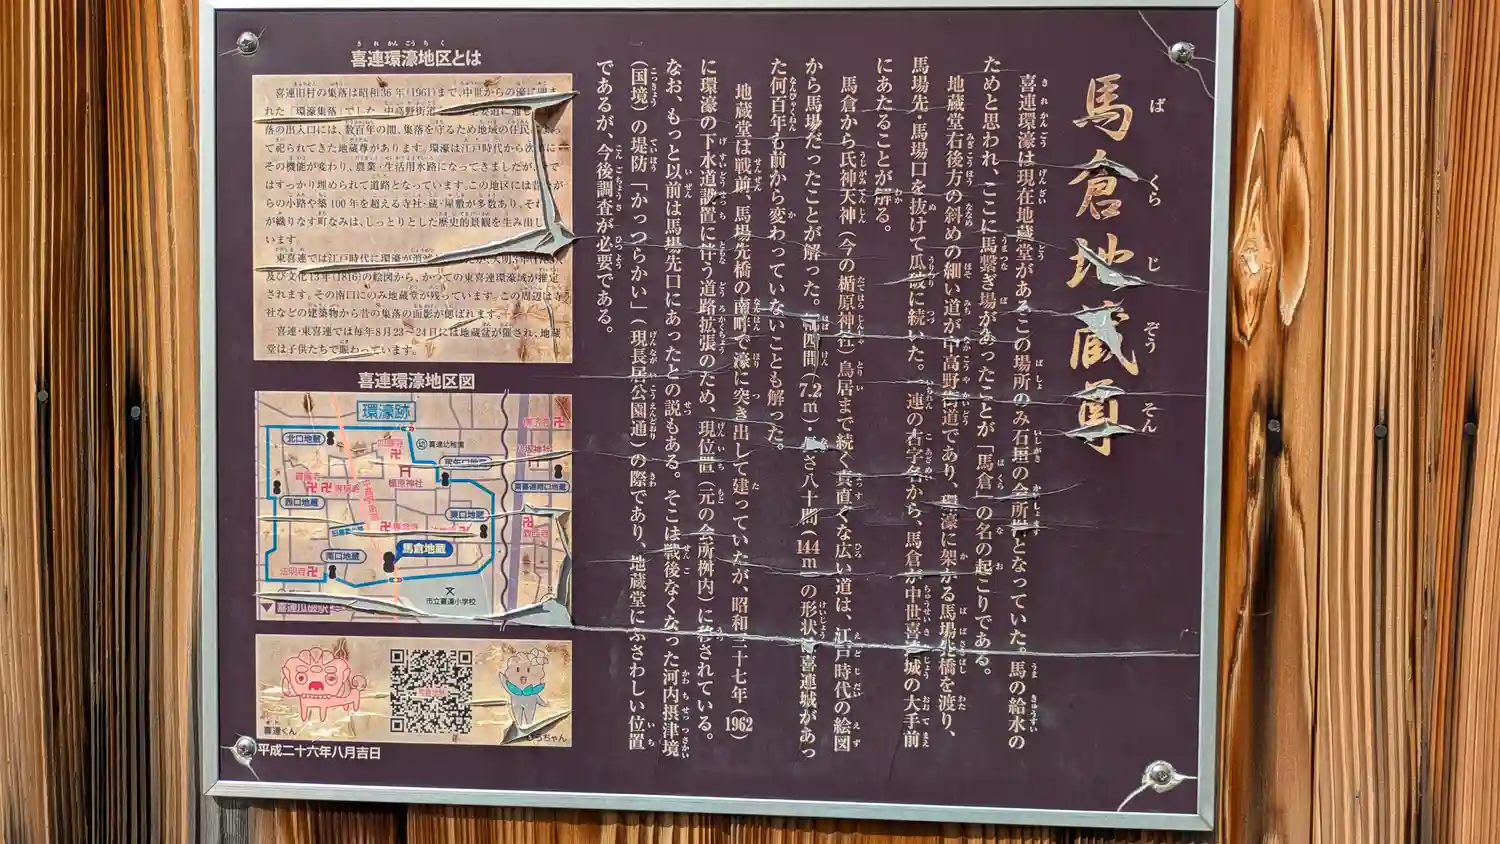 馬倉地蔵尊
喜連環濠は現在地蔵堂があるこの場所のみ石垣の会所桝となっていた。馬の給水の
ためと思われ、ここに馬繋ぎ場があったことが「馬倉」の名の起こりである。
地蔵堂右後方の斜めの細い道が中高野街道であり、環濠に架かる馬場先橋を渡り、
馬場先・馬場口を抜けて瓜破に続いた。一連の古字名から、馬倉が中世喜連城の大手前
にあたることが解る。
馬倉から氏神天神（今の楯原神社）鳥居まで続く真直ぐな広い道は、江戸時代の絵図
から馬場だったことが解った。四間（7.2m）・さ八十間（144m）の形状は喜連城があっ
た何百年も前から変わっていないことも解った。
地蔵堂は戦前、馬場先橋の南畔で濠に突き出して建っていたが、昭和三十七年（1962）
に環濠の下水道設置に伴う道路拡張のため、現位置（元の会所桝内）に移されている。
なお、もっと以前は馬場先口にあったとの説もある。そこは戦後なくなった河内摂津境
（国境）の堤防「かっつらかい」（現長居公園通）の際であり、地蔵堂にふさわしい位置
であるが、今後調査が必要である。
喜連環濠地区とは
喜連旧村の集落は昭和36年(1961)まで、中世からの濠に囲ま
れた「環濠集落」でした。中高野街道
落の出入口には、数百年の間、集落を守るため地域の住民
て祀られてきた地蔵尊があります。環濠は江戸時代から次
その機能が変わり、農業・生活用水路になってきましたが
はすっかり埋められて道路となっています。この地区には昔
らの小路や築100年を超える寺社・蔵・屋敷が多数あり、それ
が織りなす町なみは、しっとりとした歴史的景観を生み出し
います
東喜連では江戸時代に環濠が消
及び文化13年(1816)の絵図から、かつての東喜連環濠域が推定
されます。その南口にのみ地蔵堂が残っています。この周辺は寺
社などの建築物から昔の集落の面影が偲ばれます。
喜連・東喜連では毎年8月23～24日には地蔵盆が催され、地蔵
堂は子供たちで賑わっています。
喜連環濠地区図
環濠跡
北口地蔵
喜連幼稚園
楯原神社
西口地蔵
東口地蔵
馬倉地蔵
南口地蔵
法明寺卍
市立喜連小学校
▼喜連瓜破駅
喜連くん
平成二十六年八月吉日